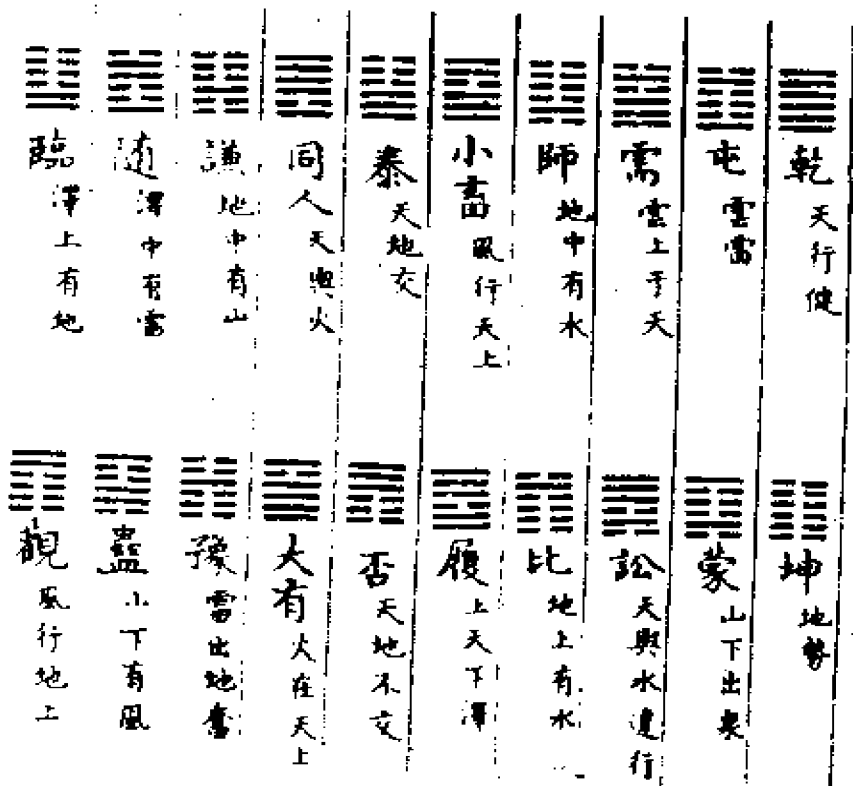 乾 天行健
坤 地勢
屯 雲雷
蒙 山下出泉
需 雲上于天
訟 天與水違行
師 地中有水
比 地上有水
小畜 風行天上
履 上天下澤
泰 天地交
否 天地不交
同人 天與火
大有 火在天上
謙 地中有山
豫 雷出地奮
随 澤中有雷
蠱 山下有風
臨 澤上有地
觀 風行地上